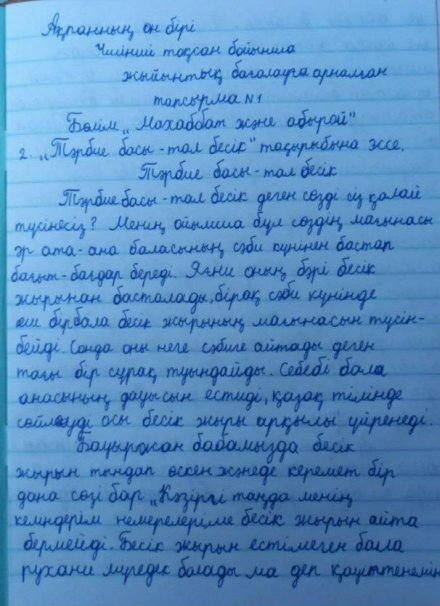 Ақпанның он бірі
Үшінші тоқсан бойынша
жыйынтық бағалауға арналған
тапсырма N1
Бөлім „Махаббат және абырой"
2. „Тәрбие басы - тал бесік" тақырыбына эссе.
Тәрбие басы - тал бесік
Тәрбие басы - тал бесік деген сөзді сіз қалай
түсінесіз? Менің ойымша бұл сөздің мағынасы
әр ата-ана баласының сәби күнінен бастап
бағыт-бағдар береді. Яғни оның бәрі бесік
жырынан басталады, бірақ сәби күнінде
еш бір бала бесік жырының мағынасын түсін-
бейді. Сонда оны неге сәбиге айтады деген
тағы бір сұрақ туындайды. Себебі бала
анасының дауысын естиді, қазақ тілінде
сөйлеуді осы бесік жыры арқылы үйренеді.
Бауыржан бабамызда бесік
жырын тыңдап өскен жәнеде керемет бір
дана сөзі бар „Кәзіргі таңда менің
келіндерім немерелеріме бесік жырын айта
бермейді. Бесік жырын естімеген бала
рухани мүгедек болады ма деп қауіптенемін